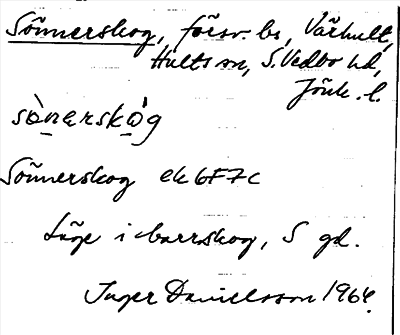 Sönnerskog, försv. bs, Värhult,
Hults sn, S. Vedbo hd,
Jönk. l.
sònarskòg
Sönnerskog ek 6F7c
Läge i barrskog, S gd.
Inger Danielsson 1964.